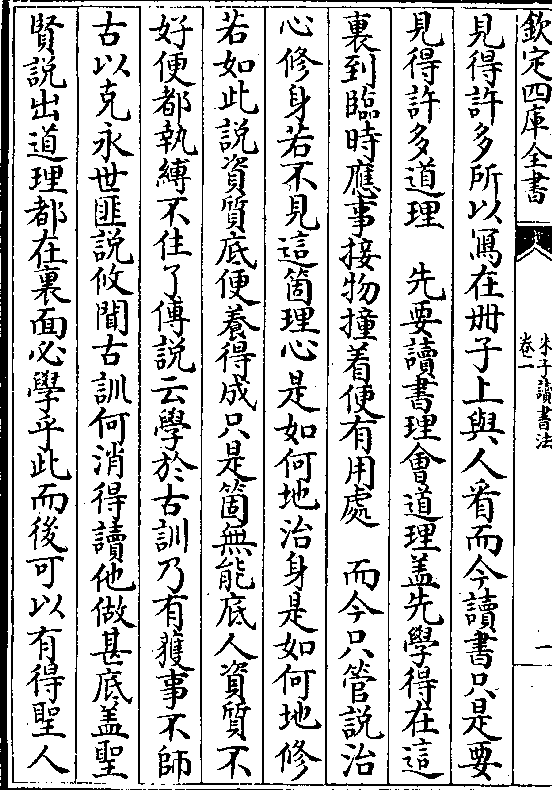 欽定四庫全書
朱子讀書法
卷一
一
見得許多所以寫在冊子上與人看而今讀書只是要
見得許多道理　先要讀書理會道理蓋先學得在這
裏到臨時應事接物撞着便有用處　而今只管説治
心修身若不見這箇理心是如何地治身是如何地修
若如此説資質底便養得成只是箇無能底人資質不
好便都執縛不住了傅説云學於古訓乃有獲事不師
古以克永世匪説攸聞古訓何消得讀他做甚底蓋聖
賢説出道理都在裏面必學乎此而後可以有得聖人